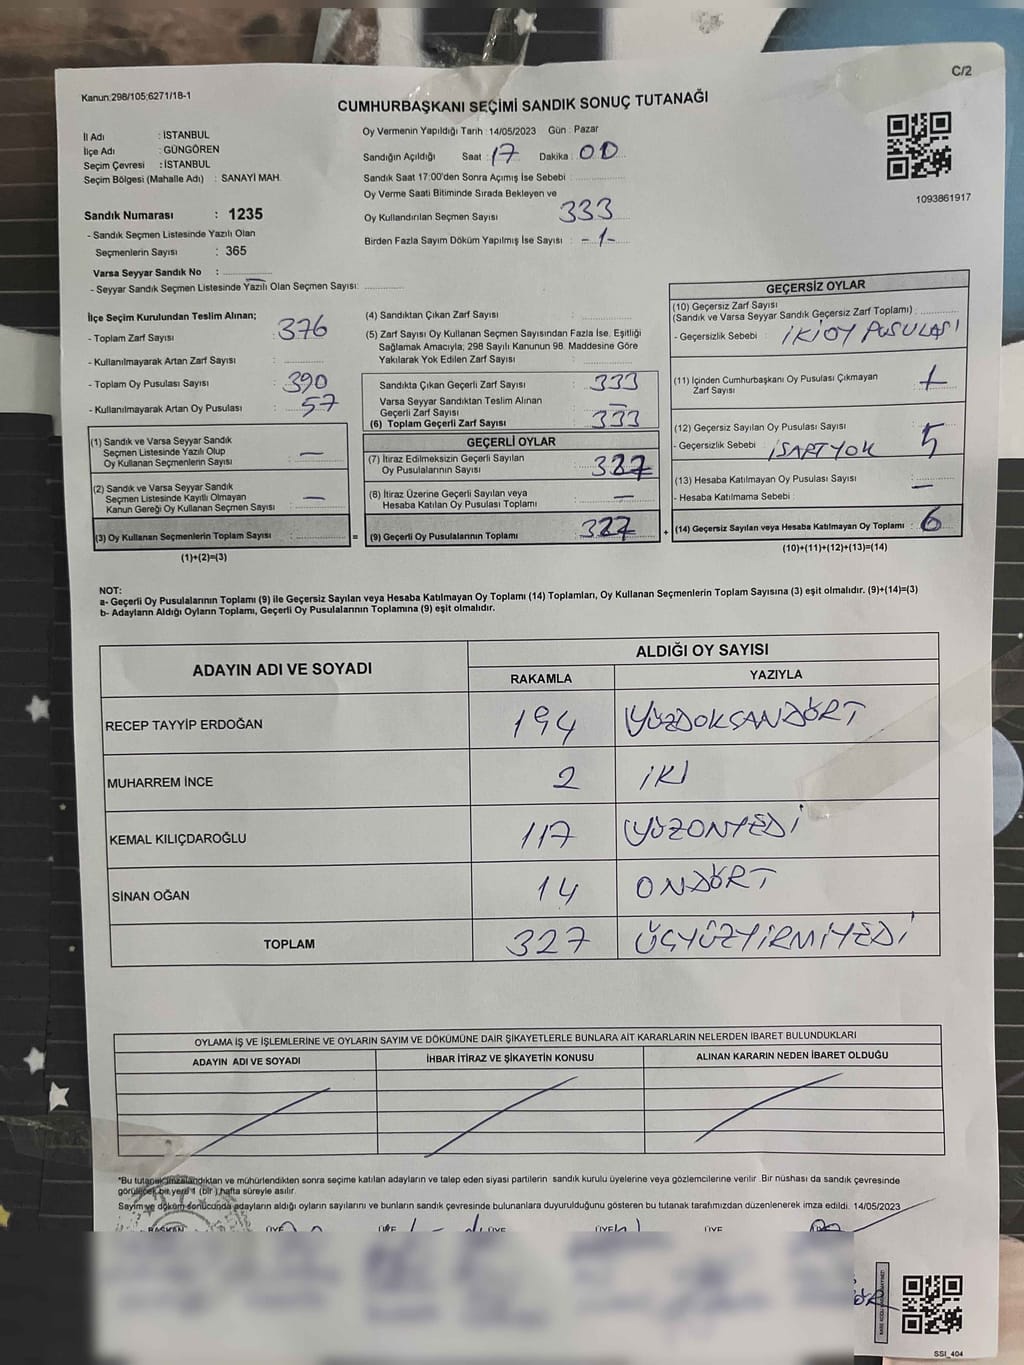 C/2
Kanun:298/105;6271/18-1
CUMHURBAŞKANI SEÇİMİ SANDIK SONUÇ TUTANAĞI
İl Adı : İSTANBUL
İlçe Adı : GÜNGÖREN
Seçim Çevresi : İSTANBUL
Seçim Bölgesi (Mahalle Adı) : SANAYİ MAH.
Sandık Numarası : 1235
- Sandık Seçmen Listesinde Yazılı Olan
Seçmenlerin Sayısı : 365
Varsa Seyyar Sandık No :
- Seyyar Sandık Seçmen Listesinde Yazılı Olan Seçmen Sayısı:
Oy Vermenin Yapıldığı Tarih : 14/05/2023 Gün : Pazar
Sandığın Açıldığı Saat : 17 Dakika : 00
Sandık Saat 17:00'den Sonra Açımış İse Sebebi :
Oy Verme Saati Bitiminde Sırada Bekleyen ve
Oy Kullandırılan Seçmen Sayısı 333
Birden Fazla Sayım Döküm Yapılmış İse Sayısı : -1-
1093861917
İlçe Seçim Kurulundan Teslim Alınan;
- Toplam Zarf Sayısı : 376
- Kullanılmayarak Artan Zarf Sayısı :
- Toplam Oy Pusulası Sayısı : 390
- Kullanılmayarak Artan Oy Pusulası : 57
(1) Sandık ve Varsa Seyyar Sandık
Seçmen Listesinde Yazılı Olup
Oy Kullanan Seçmenlerin Sayısı : —
(2) Sandık ve Varsa Seyyar Sandık
Seçmen Listesinde Kayıtlı Olmayan
Kanun Gereği Oy Kullanan Seçmen Sayısı : —
(3) Oy Kullanan Seçmenlerin Toplam Sayısı :
(1)+(2)=(3)
(4) Sandıktan Çıkan Zarf Sayısı :
(5) Zarf Sayısı Oy Kullanan Seçmen Sayısından Fazla İse, Eşitliği
Sağlamak Amacıyla; 298 Sayılı Kanunun 98. Maddesine Göre
Yakılarak Yok Edilen Zarf Sayısı :
Sandıkta Çıkan Geçerli Zarf Sayısı : 333
Varsa Seyyar Sandıktan Teslim Alınan
Geçerli Zarf Sayısı : —
(6) Toplam Geçerli Zarf Sayısı : 333
GEÇERLİ OYLAR
(7) İtiraz Edilmeksizin Geçerli Sayılan
Oy Pusulalarının Sayısı : 327
(8) İtiraz Üzerine Geçerli Sayılan veya
Hesaba Katılan Oy Pusulası Toplamı : —
= (9) Geçerli Oy Pusulalarının Toplamı : 327
GEÇERSİZ OYLAR
(10) Geçersiz Zarf Sayısı
(Sandık ve Varsa Seyyar Sandık Geçersiz Zarf Toplamı) :
- Geçersizlik Sebebi : İKİ OY PUSULASI
(11) İçinden Cumhurbaşkanı Oy Pusulası Çıkmayan
Zarf Sayısı :
(12) Geçersiz Sayılan Oy Pusulası Sayısı : 5
- Geçersizlik Sebebi : İSART YOK
(13) Hesaba Katılmayan Oy Pusulası Sayısı : —
- Hesaba Katılmama Sebebi :
+ (14) Geçersiz Sayılan veya Hesaba Katılmayan Oy Toplamı : 6
(10)+(11)+(12)+(13)=(14)
NOT:
a- Geçerli Oy Pusulalarının Toplamı (9) ile Geçersiz Sayılan veya Hesaba Katılmayan Oy Toplamı (14) Toplamları, Oy Kullanan Seçmenlerin Toplam Sayısına (3) eşit olmalıdır. (9)+(14)=(3)
b- Adayların Aldığı Oyların Toplamı, Geçerli Oy Pusulalarının Toplamına (9) eşit olmalıdır.
ADAYIN ADI VE SOYADI
ALDIĞI OY SAYISI
RAKAMLA YAZIYLA
RECEP TAYYİP ERDOĞAN 194 YÜZDOKSANDÖRT
MUHARREM İNCE 2 İKİ
KEMAL KILIÇDAROĞLU 117 YÜZONYEDİ
SİNAN OĞAN 14 ONDÖRT
TOPLAM 327 ÜÇYÜZYİRMİYEDİ
OYLAMA İŞ VE İŞLEMLERİNE VE OYLARIN SAYIM VE DÖKÜMÜNE DAİR ŞİKAYETLERLE BUNLARA AİT KARARLARIN NELERDEN İBARET BULUNDUKLARI
ADAYIN ADI VE SOYADI İHBAR İTİRAZ VE ŞİKAYETİN KONUSU ALINAN KARARIN NEDEN İBARET OLDUĞU
*Bu tutanak imzalandıktan ve mühürlendikten sonra seçime katılan adayların ve talep eden siyasi partilerin sandık kurulu üyelerine veya gözlemcilerine verilir. Bir nüshası da sandık çevresinde
görülecek bir yere 1 (bir) hafta süreyle asılır.
Sayım ve döküm sonucunda adayların aldığı oyların sayılarını ve bunların sandık çevresinde bulunanlara duyurulduğunu gösteren bu tutanak tarafımızdan düzenlenerek imza edildi. 14/05/2023
BAŞKAN ÜYE ÜYE ÜYE ÜYE ÜYE
SSI_404